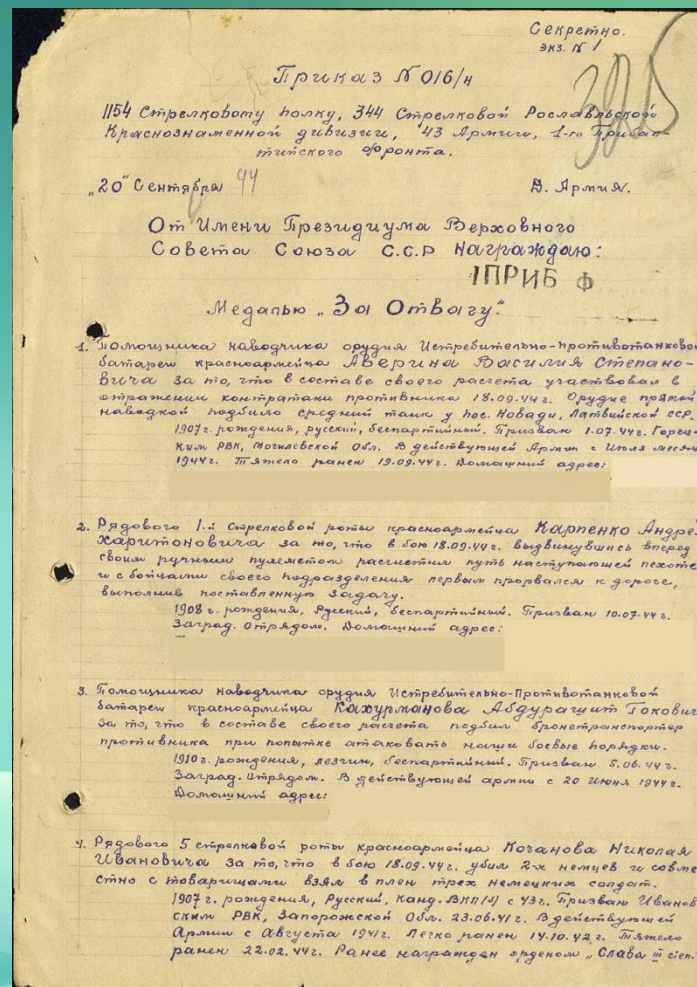 Секретно.
экз. № 1
Приказ № 016/н
1154 Стрелковому полку, 344 Стрелковой Рославльской
Краснознаменной дивизии, 43 Армии, 1-го Прибал
тийского фронта.
„20“ Сентября 44 Д. Армия.
От Имени Президиума Верховного
Совета Союза С.С.Р Награждаю:
1ПРИБ Ф
Медалью „За Отвагу“.
1. Помощника наводчика орудия Истребительно-противотанковой
батареи красноармейца Аверина Василия Степано-
вича за то, что в составе своего расчета участвовал в
отражении контратаки противника 18.09.44г. Орудие прямой
наводкой подбило средний танк у пос. Новади, Латвийской ССР.
1907г. рождения, русский, беспартийный. Призван 1.07.44г. Горец-
ким РВК, Могилевской Обл. В действующей Армии с Июля месяца
1944г. Тяжело ранен 19.09.44г. Домашний адрес:
2. Рядового 1-й стрелковой роты красноармейца Карпенко Андрея
Харитоновича за то, что в бою 18.09.44г. выдвинувшись вперед
своим ручным пулеметом расчистил путь наступающей пехоте
и с бойцами своего подразделения первым прорвался к дороге,
выполнив поставленную задачу.
1908г. рождения, Русский, беспартийный. Призван 10.07.44г.
Заград. Отрядом. Домашний адрес:
3. Помощника наводчика орудия Истребительно-Противотанковой
батареи красноармейца Кахурманова Абдурашит Токович
за то, что в составе своего расчета подбил бронетранспортер
противника при попытке атаковать наши боевые порядки.
1910г. рождения, лезгин, беспартийный. Призван 5.06.44г.
Заград. Отрядом. В действующей армии с 20 Июня 1944г.
Домашний адрес:
4. Рядового 5 стрелковой роты красноармейца Кочанова Николая
Ивановича за то, что в бою 18.09.44г. убил 2-х немцев и совме
стно с товарищами взял в плен трех немецких солдат.
1907г. рождения, Русский, Канд. ВКП/б/ с 43г. Призван Иванов
ским РВК, Запорожской Обл. 23.06.41г. В действующей
Армии с Августа 1941г. Легко ранен 14.10.42г. Тяжело
ранен 22.02.44г. Ранее награжден орденом „Слава III степ.